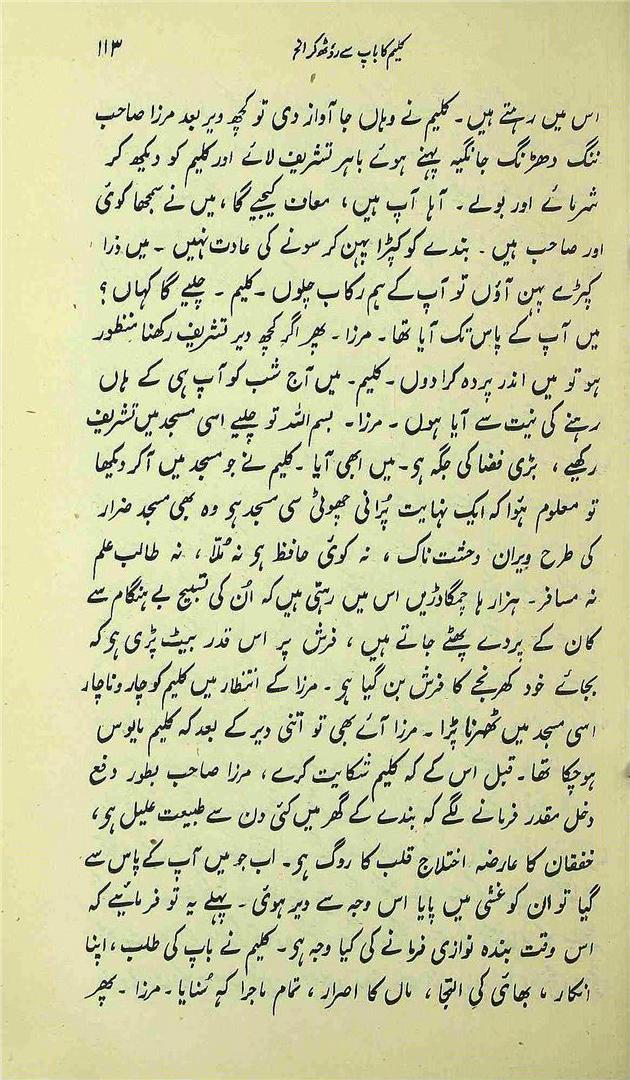 کلیم کا باپ سے روٹھ کر الخ ۱۱۳
اس میں رہتے ہیں۔ کلیم نے وہاں جا آواز دی تو کچھ دیر بعد مرزا صاحب
ننگ دھڑنگ جانگیہ پہنے ہوئے باہر تشریف لائے اور کلیم کو دیکھ کر
شرمائے اور بولے۔ آہا آپ ہیں، معاف کیجیے گا، میں نے سمجھا کوئی
اور صاحب ہیں۔ بندے کو کپڑا پہن کر سونے کی عادت نہیں۔ میں ذرا
کپڑے پہن آؤں تو آپ کے ہم رکاب چلوں۔ کلیم۔ چلیے گا کہاں؟
میں آپ کے پاس تک آیا تھا۔ مرزا۔ پھر اگر کچھ دیر تشریف رکھنا منظور
ہو تو میں اندر پردہ کرا دوں۔ کلیم۔ میں آج شب کو آپ ہی کے ہاں
رہنے کی نیت سے آیا ہوں۔ مرزا۔ بسم اللہ تو چلیے اسی مسجد میں تشریف
رکھیے، بڑی فضا کی جگہ ہو۔ میں ابھی آیا۔ کلیم نے جو مسجد میں آ کر دیکھا
تو معلوم ہُوا کہ ایک نہایت پُرانی چھوٹی سی مسجد ہو وہ بھی مسجد ضرار
کی طرح ویران وحشت ناک، نہ کوئی حافظ ہو نہ مُلّا، نہ طالب علم
نہ مسافر۔ ہزار ہا چمگادڑیں اس میں رہتی ہیں کہ اُن کی تسبیح بے ہنگام سے
کان کے پردے پھٹے جاتے ہیں، فرش پر اس قدر بیٹ پڑی ہو کہ
بجائے خود کھرنجے کا فرش بن گیا ہو۔ مرزا کے انتظار میں کلیم کو چار و ناچار
اسی مسجد میں ٹھیرنا پڑا۔ مرزا آئے بھی تو اتنی دیر کے بعد کہ کلیم مایوس
ہو چکا تھا۔ قبل اس کے کہ کلیم شکایت کرے، مرزا صاحب بطور دفع
دخل مقدر فرمانے لگے کہ بندے کے گھر میں کئی دن سے طبیعت علیل ہو،
خفقان کا عارضہ اختلاج قلب کا روگ ہو۔ اب جو میں آپ کے پاس سے
گیا تو ان کو غشی میں پایا اس وجہ سے دیر ہوئی۔ پہلے یہ تو فرمائیے کہ
اس وقت بندہ نوازی فرمانے کی کیا وجہ ہو۔ کلیم نے باپ کی طلب، اپنا
انکار، بھائی کی التجا، ماں کا اصرار، تمام ماجرا کہہ سُنایا۔ مرزا۔ پھر